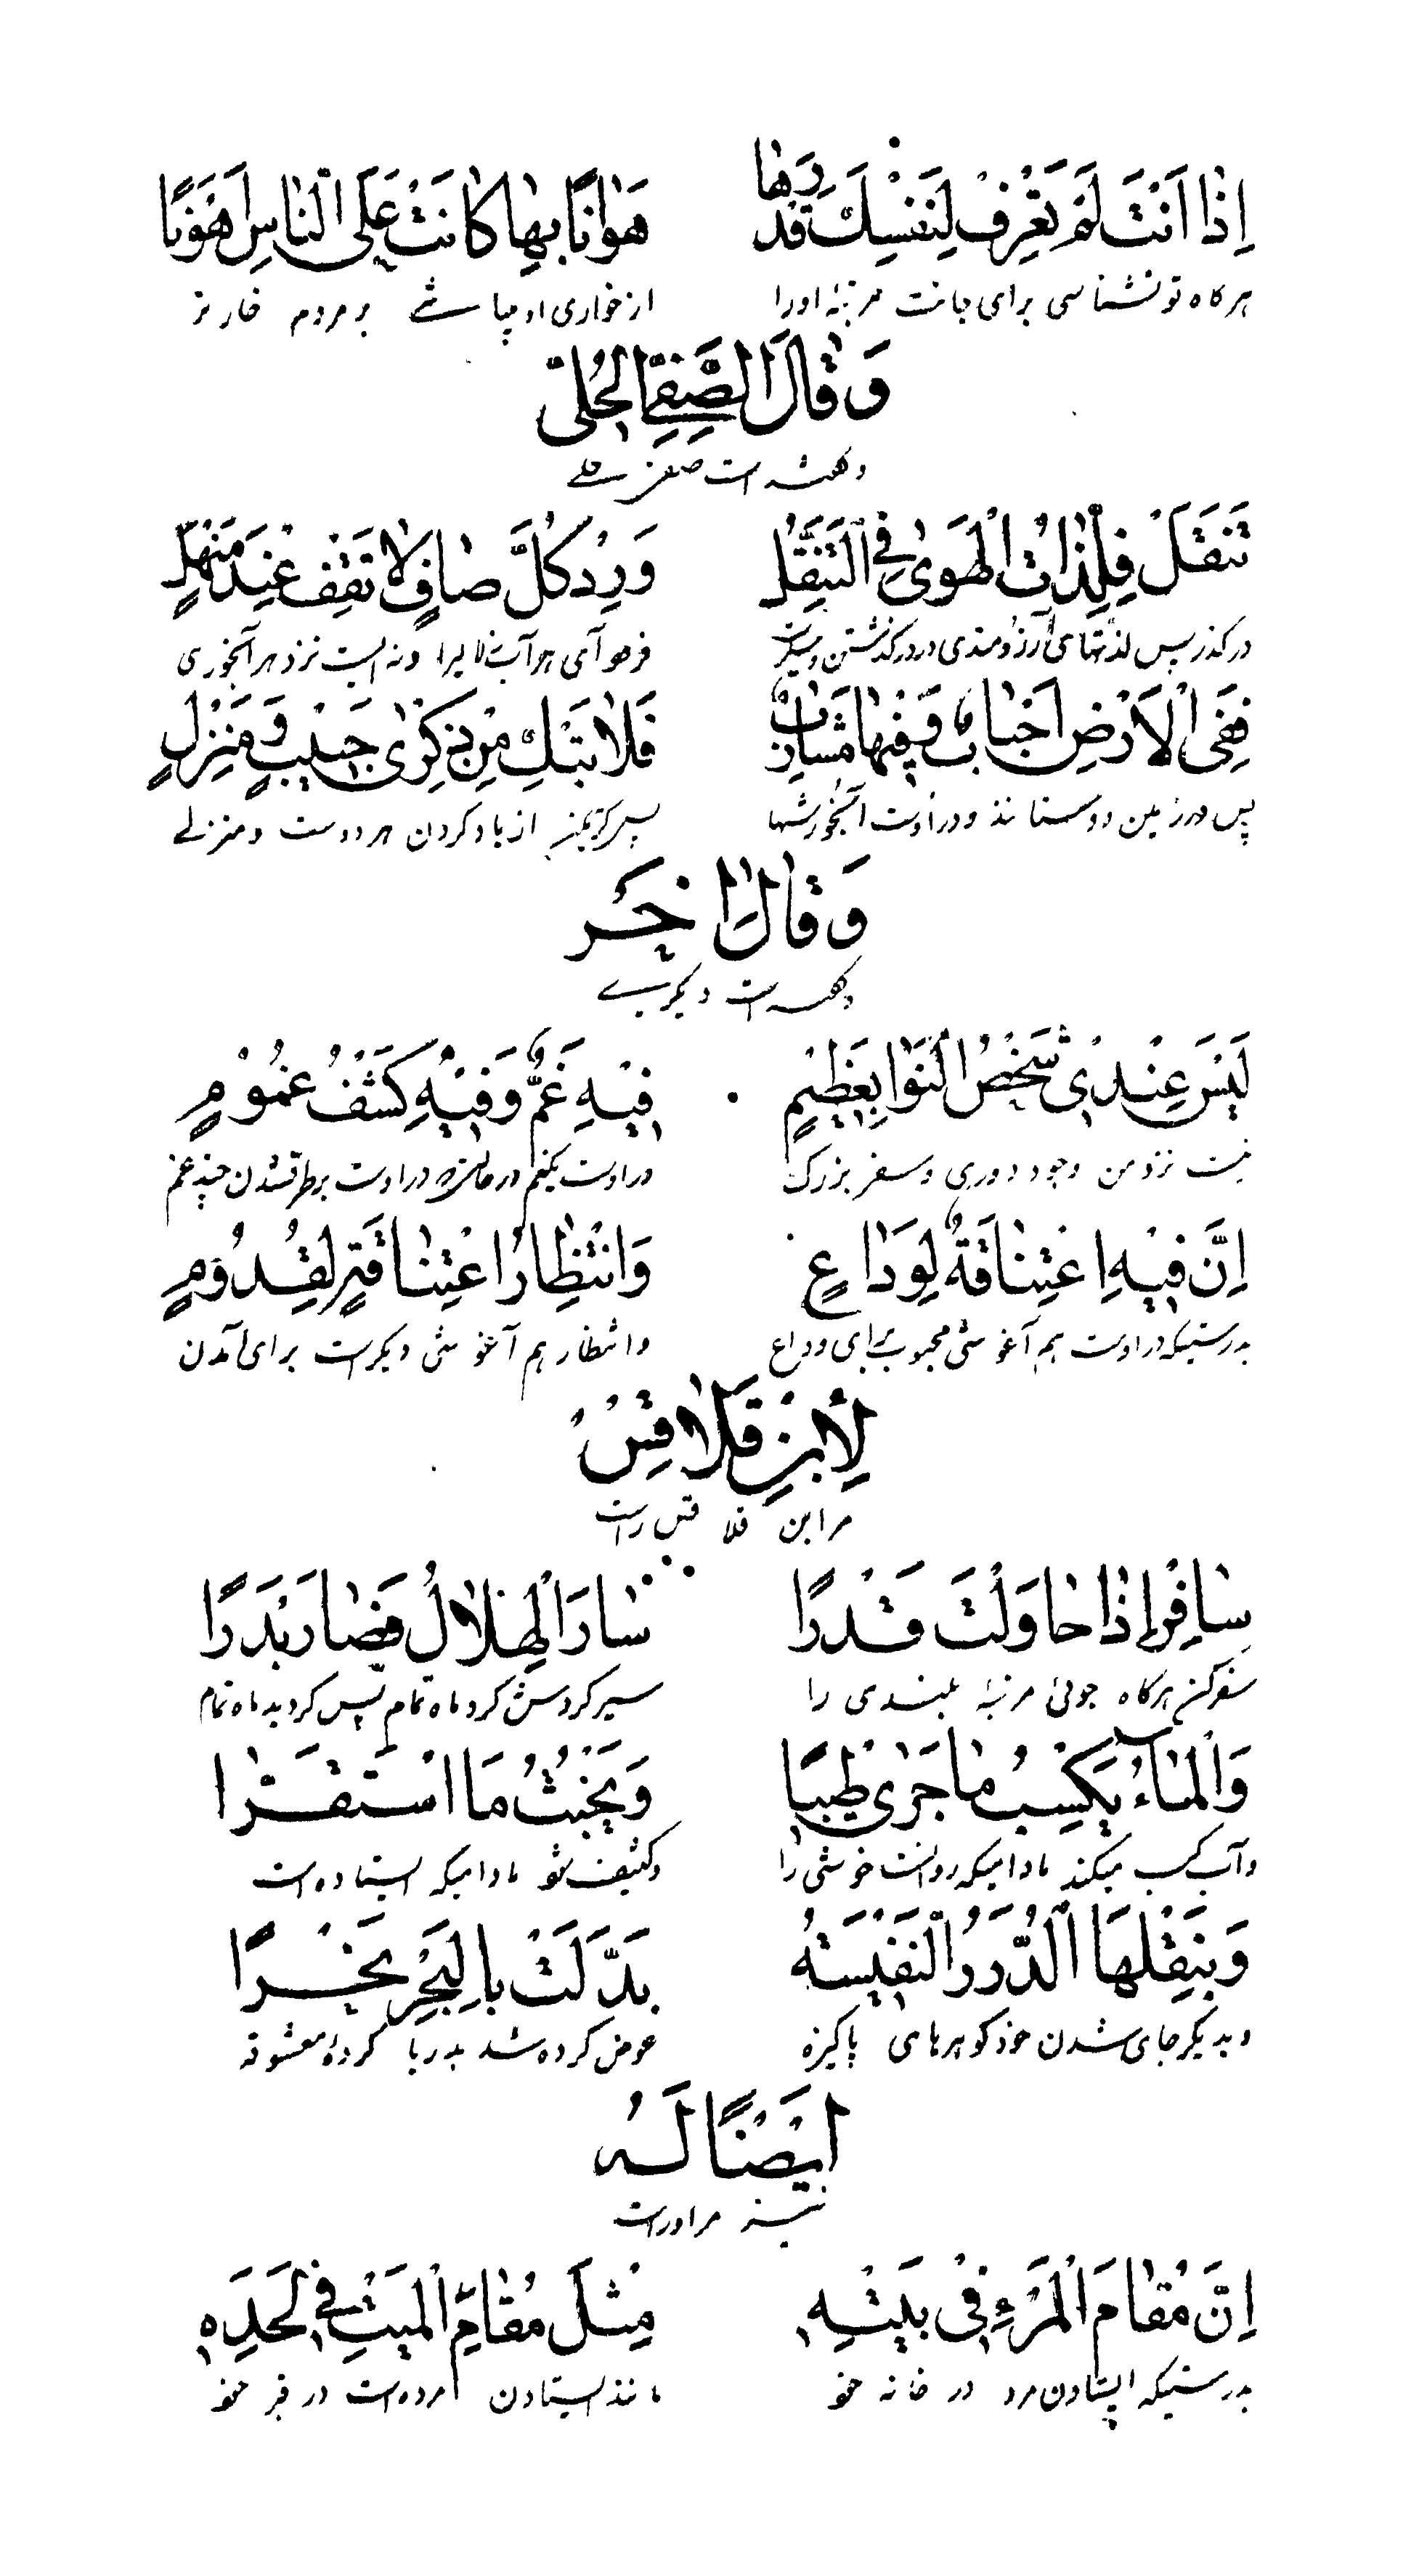 اِذٰا اَنْتَ لَمْ تَعْرِفْ لِنَفْسِكَ قَدْرَهٰا هَوٰانًا بِهٰا كٰانَتْ عَلَى النّٰاسِ اَهْوَنٰا
هرکاه تو نشناسی برای جانت مرتبۀ اورا از خواری او میباشے بر مردم خارتر
وَقٰالَ الصَّفِیُّ الْحُلِّیّ
و گفته است صفی حلے
تَنَقَّلْ فَلِذّٰاتُ الْهَوٰی فِی التَّنَقُّلِ وَرِدْ كُلَّ صٰافٍ لٰا تَقِفْ عِنْدَ مَنْهَلٍ
درکذر پس لذّتهای آرزومندی در درکذشتن فرود آی هر آب نزد هر آبخوری
فَفِی الْاَرْضِ اَحْبٰابٌ وَفِیْهٰا مَشٰارِبٌ فَلٰا تَبْكِ مِنْ ذِكْرٰی حَبِیْبٍ وَمَنْزِلٍ
پس در زمین دوستانند و در اوست آبخورشها پس کریه مکن از یاد کردن هر دوست و منزلے
وَقٰالَ اٰخَر
و گفته است دیکرے
لَیْسَ عِنْدِیْ شَخْصُ النَّوٰا بِعَظِیْمٍ فِیْهِ غَمٌّ وَفِیْهِ كَشْفُ غُمُوْمٍ
نیست نزد من وجود دوری و سفر بزرك در اوست یکغم در اوست برطرف شدن چند غم
اِنَّ فِیْهِ اِعْتِنٰاقَةٌ لِوَدٰاعٍ وَانْتِظٰارُ اعْتِنٰاقَةٍ لِقُدُوْمٍ
بدرستیکه در اوست هم آغوشی محبوب برای وداع و انتظار هم آغوشی دیکرست برای آمدن
لِاَبْنِ قَلٰاقِسْ
مر ابن قلاقس راست
سٰافِرْ اِذٰا حٰاوَلْتَ قَدْرًا سٰارَ الْهِلٰالُ فَصٰارَ بَدْرًا
سفر کن هرکاه جوئی مرتبۀ بلندی را سیر کردش کرد ماه تمام پس کردید ماه تمام
وَالْمٰاءُ یَكْسِبُ مٰا جَرٰی طِیْبًا وَیَخْبُثُ مَا اسْتَقَرّٰا
و آب کسب میکند مادامیکه روانست خوشی را و کثیف شود مادامیکه ایستاده است
وَبِنَقْلِهَا الدُّرَرُ النَّفِیْسَةُ بَدَّلَتْ بِالْبَحْرِ نَحْرًا
و بدیکر جای شدن خود کوهرهای پاکیزه عوض کرده شد بدریا کردۀ معشوقه
اَیْضًا لَهُ
نیز مر اوراست
اِنَّ مُقٰامَ الْمَرْءِ فِیْ بَیْتِهِ مِثْلُ مُقٰامِ الْمَیْتِ فِی لَحْدِهِ
بدرستیکه ایستادن مرد در خانه خود مانند ایستادن مرده است در قبر خود